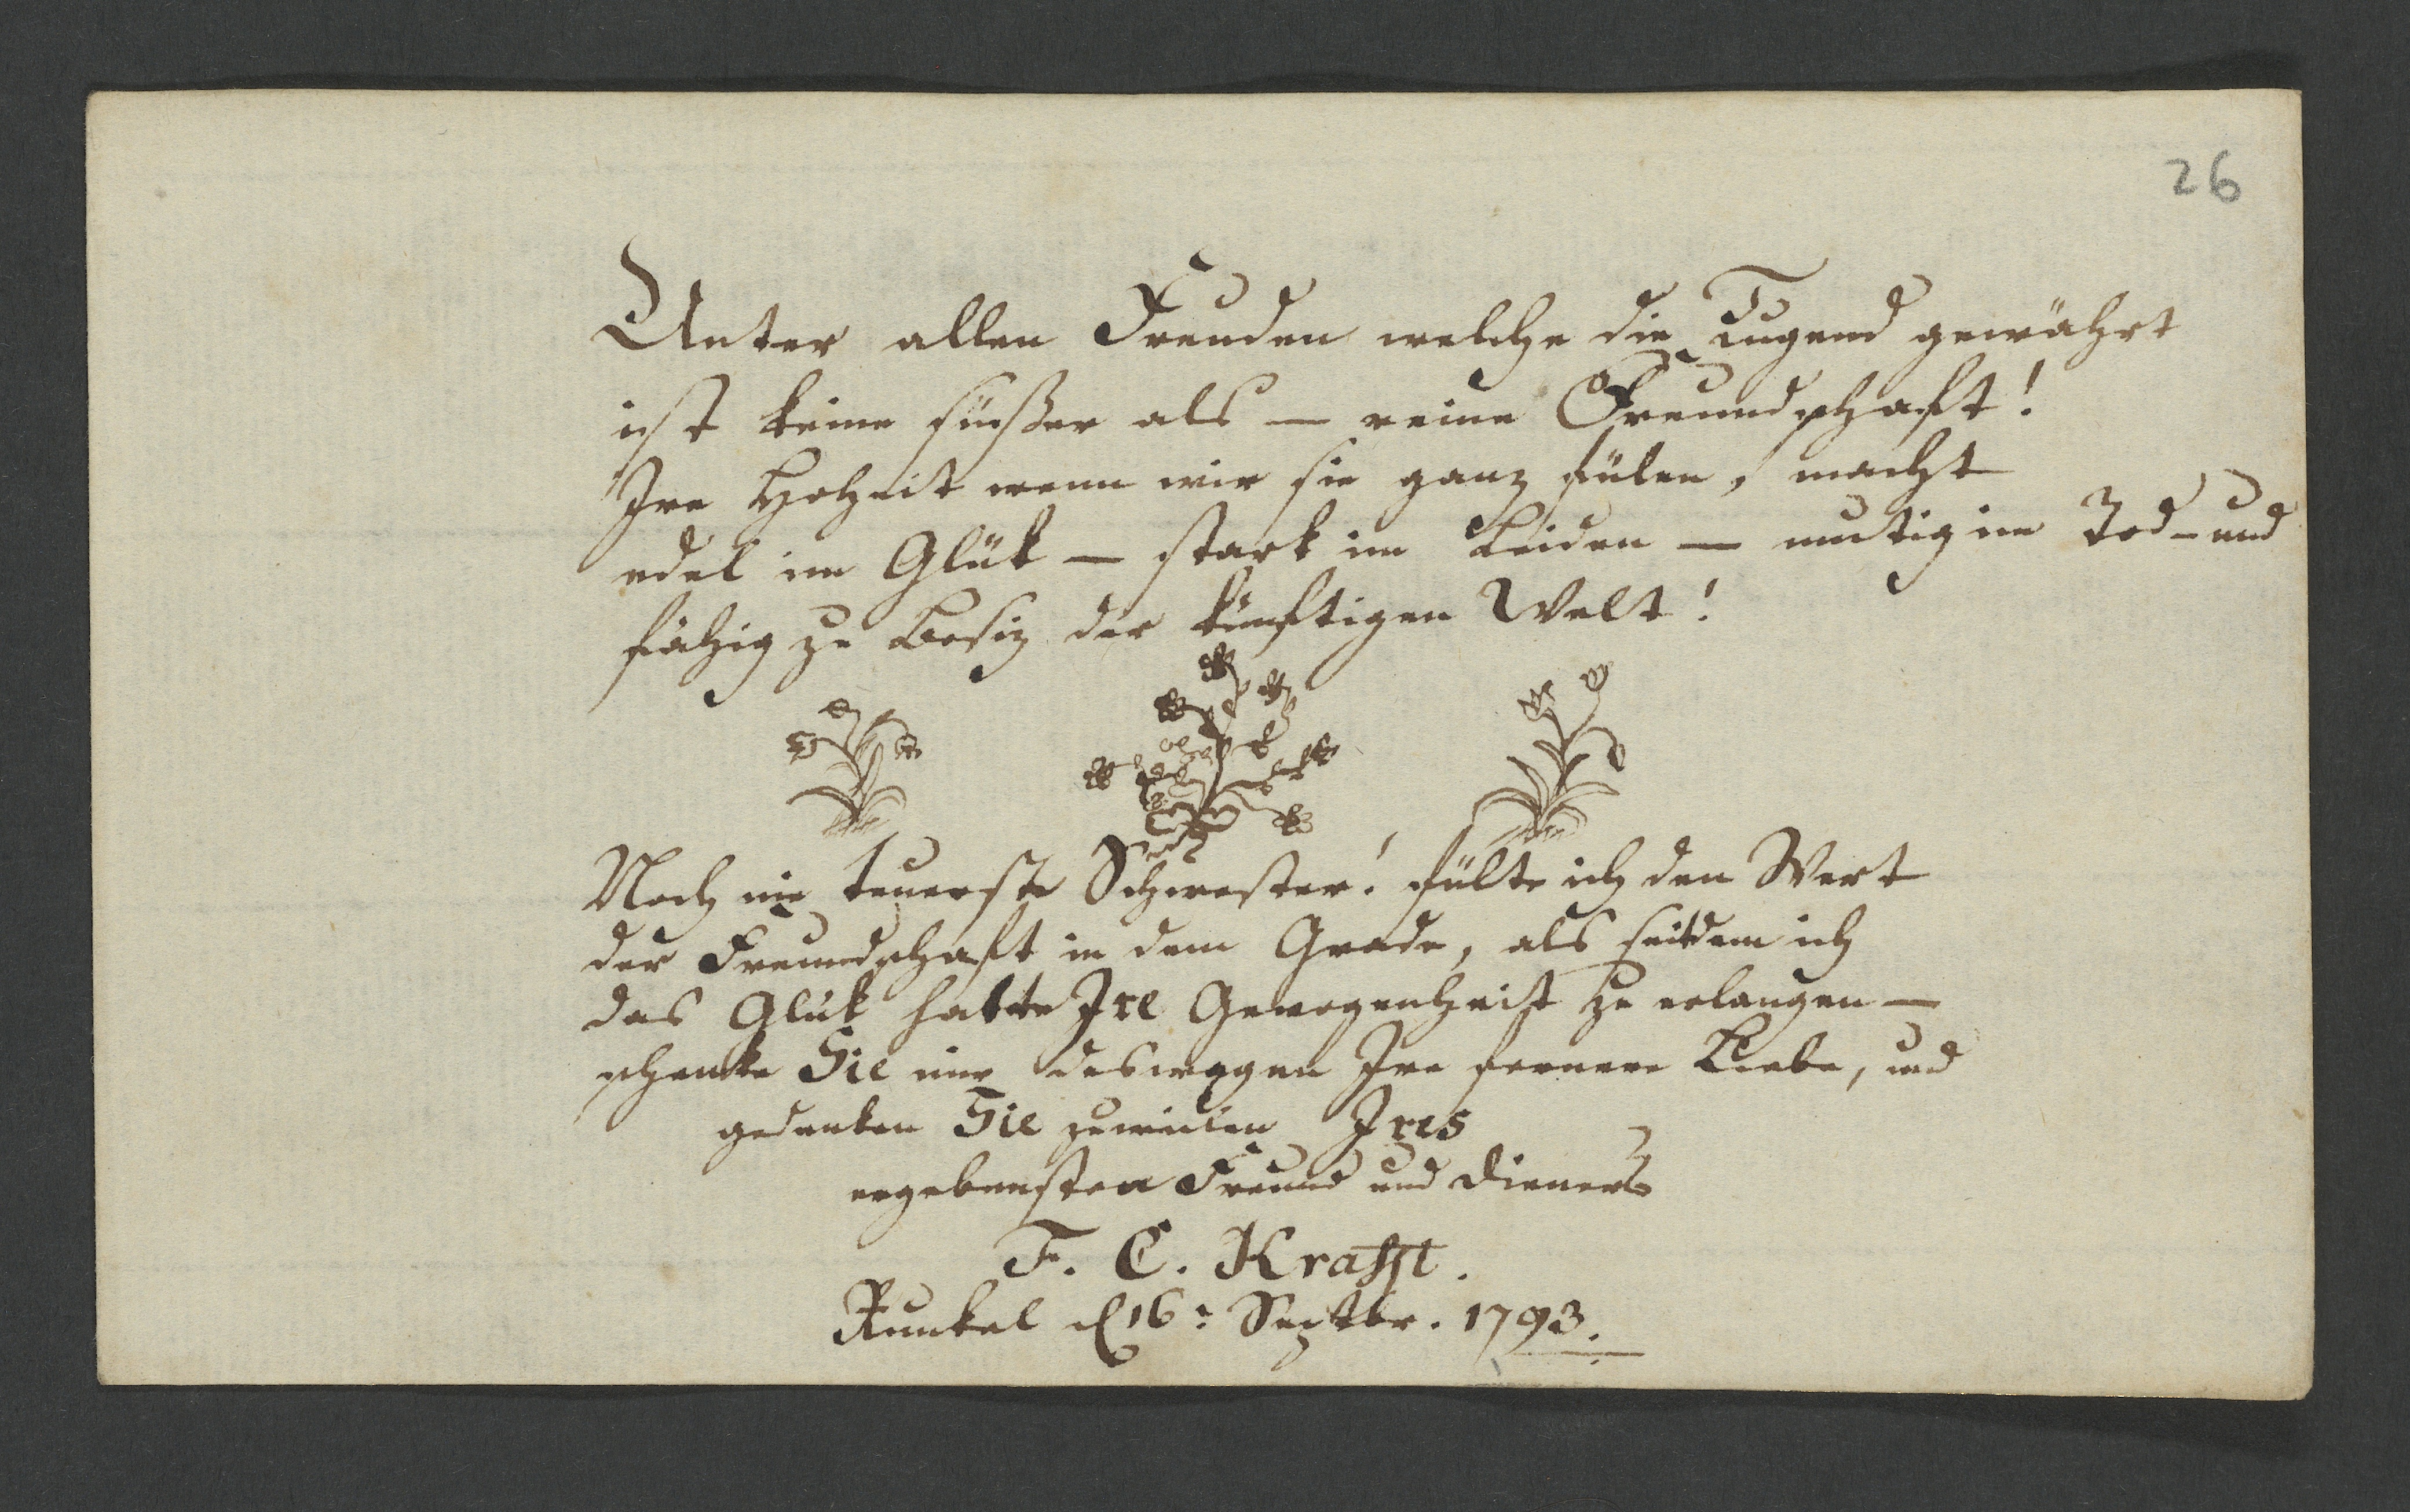 26
Unter allen Freuden welche die Tugend gewährt
ist keine süßer als — reine Freundschaft!
Ire Hoheit wenn wir sie ganz fülen, macht
edel im Glük — stark im Leiden — mutig im Tod — und
fähig zu Besiz der künftigen Welt!
Noch nie teuerste Schwester! fülte ich den Wert
der Freundschaft in dem Grade, als seitdem ich
das Glük hatte Ire Gewogenheit zu erlangen —
schenke Sie mir deswegen Ire fernere Liebe, und
gedenken Sie zuweilen Ires
ergebensten Freund und Dieners
F. C. Krafft.
Runkel d 16: Septbr. 1793.